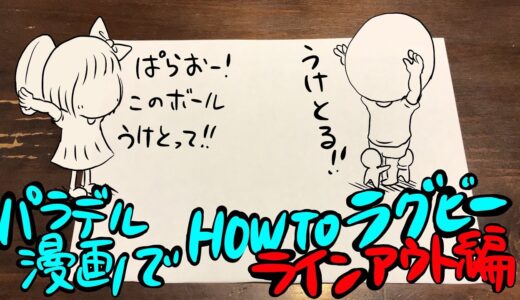 ぱらおー!
このボール
うけとって!!
うけとる!!
パラデル
漫画で HOW TO ラグビー
ラインアウト編